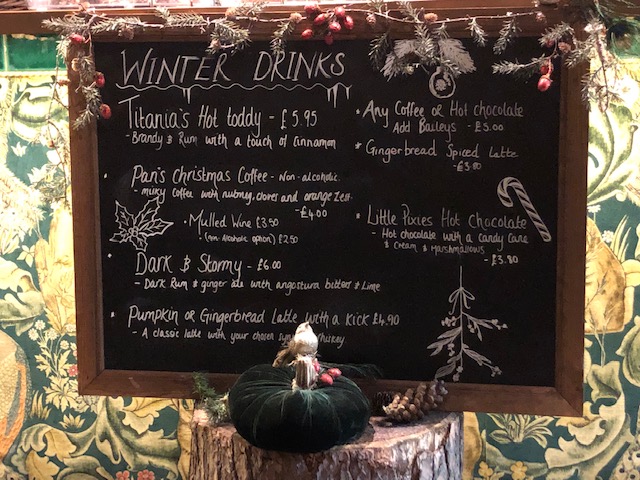 WINTER DRINKS
Titania's Hot toddy - £5.95
- Brandy & Rum with a touch of cinnamon
Pan's christmas Coffee - Non-alcoholic.
- milky coffee with nutmeg, cloves and orange zest.
- £4.00
• Mulled Wine £3.50
- (non-Alcoholic option) £2.50
• Dark & Stormy - £6.00
- Dark Rum & ginger ale with angostura bitters & Lime
• Pumpkin or Gingerbread Latte with a kick £4.90
- A classic latte with your chosen whiskey
• Any Coffee or Hot chocolate
Add Baileys - £5.00
• Gingerbread Spiced Latte
- £3.80
• Little Pixies Hot Chocolate
- Hot chocolate with a candy cane
& Cream & Marshmallows
- £3.80